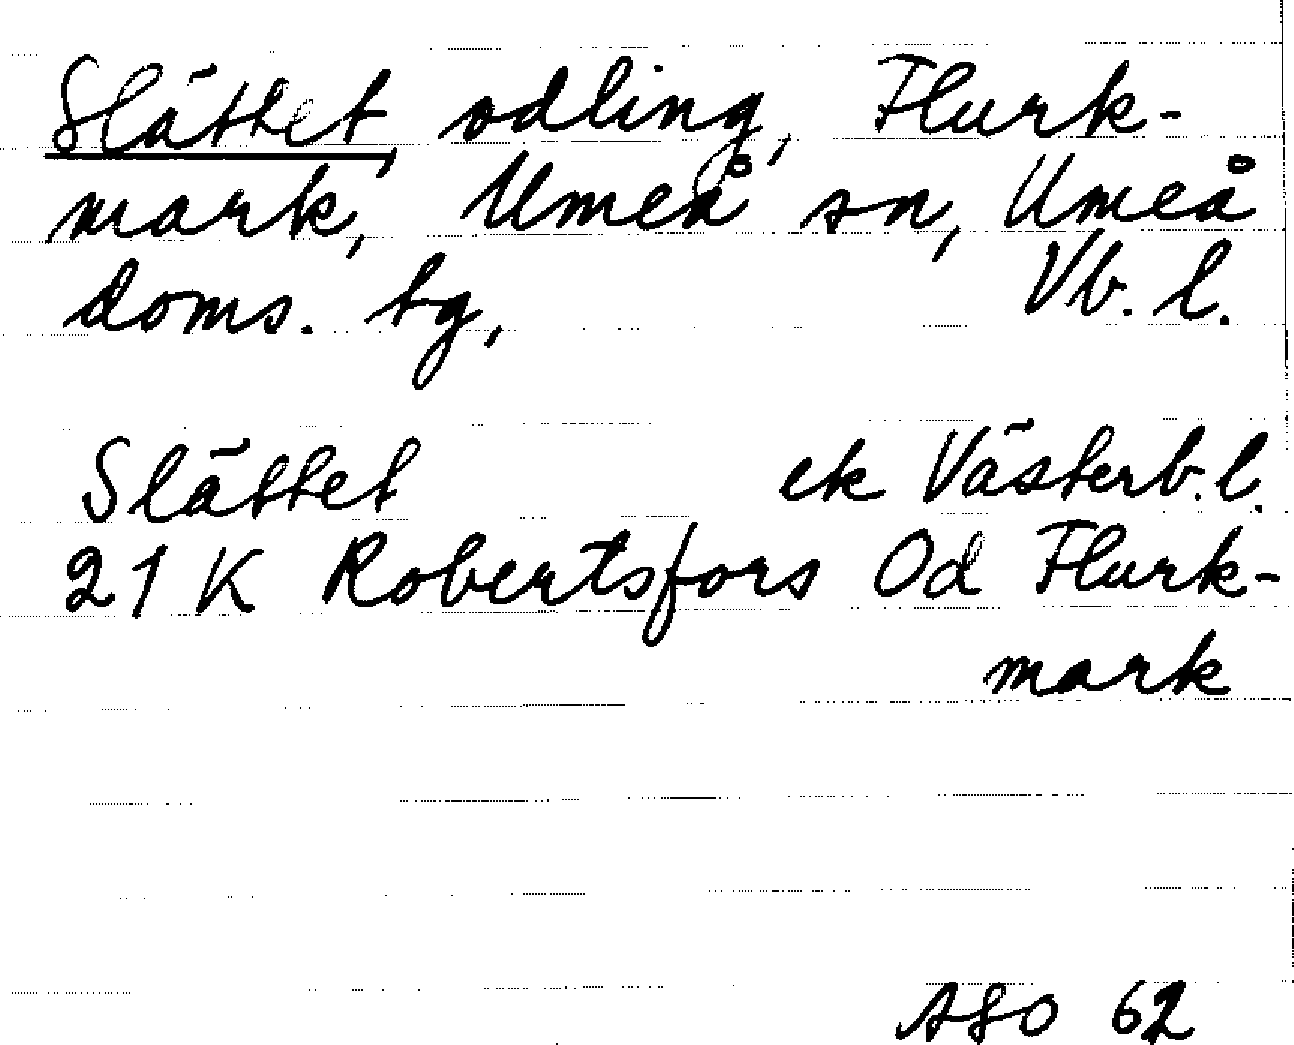 Slättet, odling, Flurk-
mark, Umeå sn, Umeå
doms. tg, Vb. l.
Slättet ek Västerb. l.
21 K Robertsfors Od Flurk-
mark
62